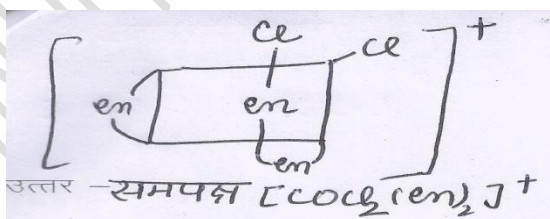 Cl
Cl
+
en
en
en
उत्तर - समपक्ष [COCl2(en)2]+